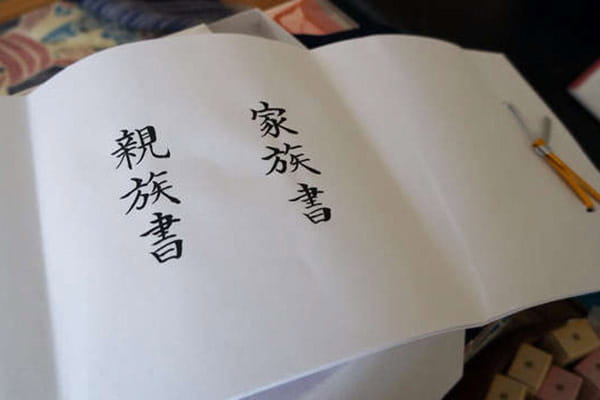 家族書
親族書